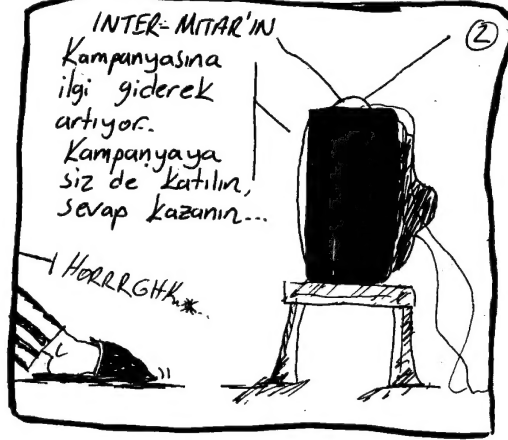 INTER-MITAR'IN
Kampanyasına
ilgi giderek
artıyor..
Kampanyaya
siz de katılın,
sevap kazanın...
2
HORRRGHK...